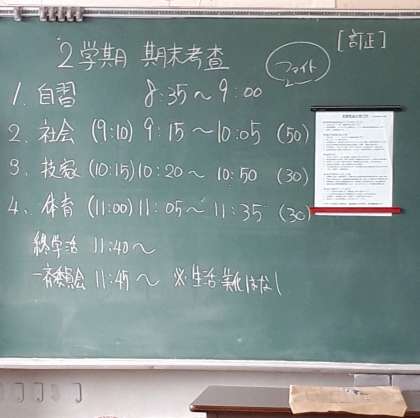 [訂正]
2学期 期末考査
ファイト
1. 自習 8:35〜9:00
2. 社会 (9:10) 9:15〜10:05 (50)
3. 技家 (10:15) 10:20〜10:50 (30)
4. 体育 (11:00) 11:05〜11:35 (30)
終学活 11:40〜
一斉委員会 11:45〜 ※生活 美化はなし